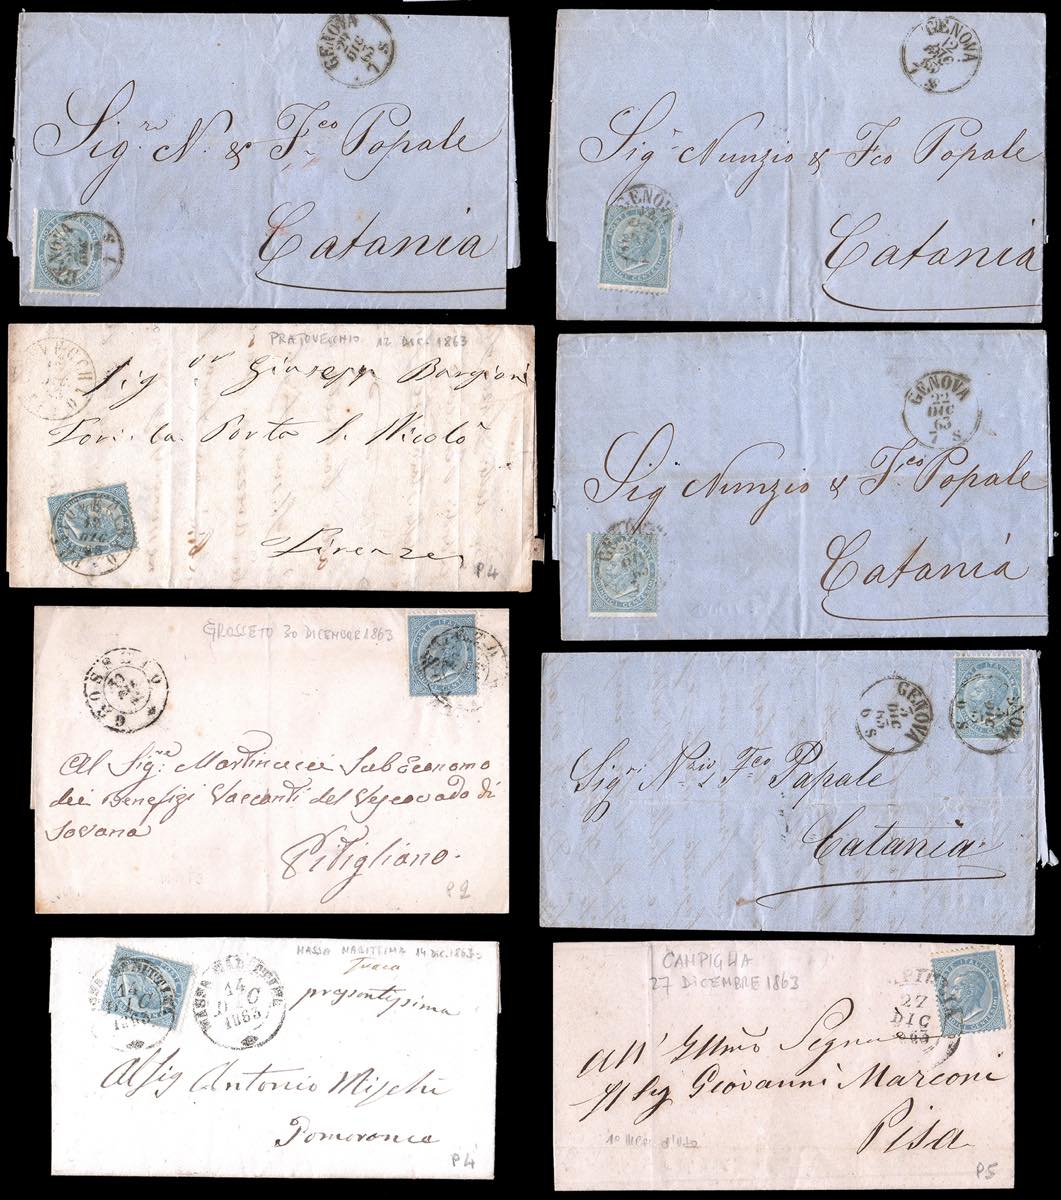 GENOVA
DIC
63
7 S
Sig.ri N. & F.co Papale
Catania
GENOVA
12
DIC
63
7 S
Sig.i Nunzio & Fco Papale
GENOVA
Catania
PRATOVECCHIO 12 DIC. 1863
VECCHIO
Sig.or Giuseppe
la Porta S. Nicolò
12
DIC
63
Firenze
P4
GENOVA
22
DIC
63
7 S
Sig.i Nunzio & F.co Papale
GENOVA
Catania
GROSSETO 30 DICEMBRE 1863
GROSSETO
Al Sig.re Martinucci Sub Economo
dei Benefizi Vacanti del Vescovado di
Sovana
Pitigliano.
P2
GENOVA
2
DIC
63
6 S
Sig.ri N.zio & F.co Papale
Catania
MASSA MARITTIMA 14 DIC. 1863
MASSA MARITTIMA
14
DIC
1863
pressantissima
Al Sig Antonio
Pomarance
P4
CAMPIGLIA
27 DICEMBRE 1863
27
DIC
1863
All' Illmo Signore
Il Sig Giovanni Marconi
Pisa
P5